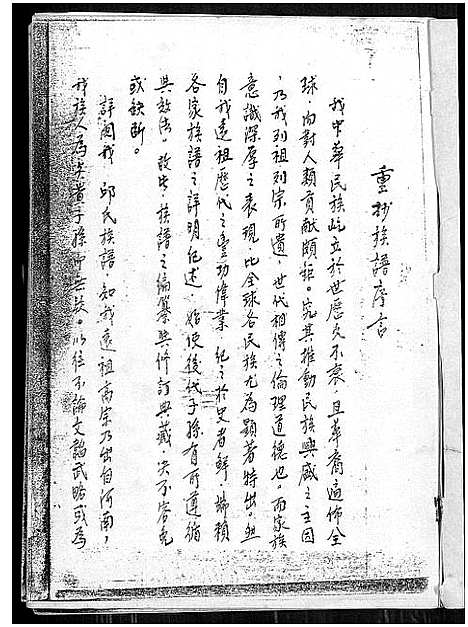 重抄族譜序言
我中華民族屹立於世歷久不衰，且華裔遍佈全
球，向對人類貢献頗鉅。究其推動民族興盛之主因
，乃我列祖列宗所遺，世代相傳之倫理道德也。而家族
意識深厚之表現，比全球各民族尤為顯著特出。無
自我遠祖歷代之豐功偉業，紀之於史者鮮，端賴
各家族譜之詳明紀述，始使後代子孫有所遵循
與效法。故此，族譜之編纂與修訂典藏，决不容忽
或缺断。
詳閱我　邱氏族譜，知我遠祖高宗乃出自河南，
我族人為炎黃子孫即無疑。以往不論文韜武略或為